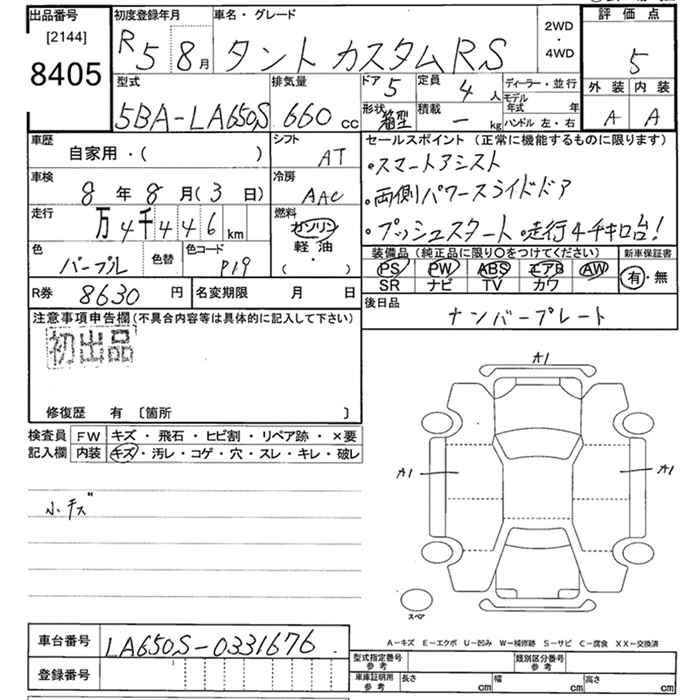 出品番号 初度登録年月 車名・グレード 2WD・4WD 評価点
[2144]
8405
R5 8月 タント カスタムRS 5
型式 排気量 ドア 5 定員 4人 ディーラー・並行 外装 内装
5BA-LA650S 660cc 形状 箱型 積載 ー kg モデル年式 年 ハンドル 左・右 A A
車歴 自家用・( ) シフト AT セールスポイント (正常に機能するものに限ります)
・スマートアシスト
車検 8年8月(3日) 冷房 AAC
・両側パワースライドドア
走行 万4千446km 燃料 ガソリン 軽油・( )
・プッシュスタート・走行4千キロ台!
色 パープル 色替 色コード P19
装備品 (純正品に限り○をつけてください) 新車保証書
PS PW ABS エアB AW 有・無
SR ナビ TV カワ
R券 8630円 名変期限 月 日
後日品 ナンバープレート
注意事項申告欄(不具合内容等は具体的に記入して下さい)
初出品
修復歴 有 〔箇所 〕
検査員 FW キズ・飛石・ヒビ割・リペア跡・×要
記入欄 内装 キズ・汚レ・コゲ・穴・スレ・キレ・破レ
小キズ
A1
A1 A1
スペア
A-キズ E-エクボ U-凹み W-補修跡 S-サビ C-腐食 XX-交換済
車台番号 LA650S-0331676
登録番号
型式指定番号 参考 類別区分番号 参考
車庫証明用 参考 長さ cm 幅 cm 高さ cm